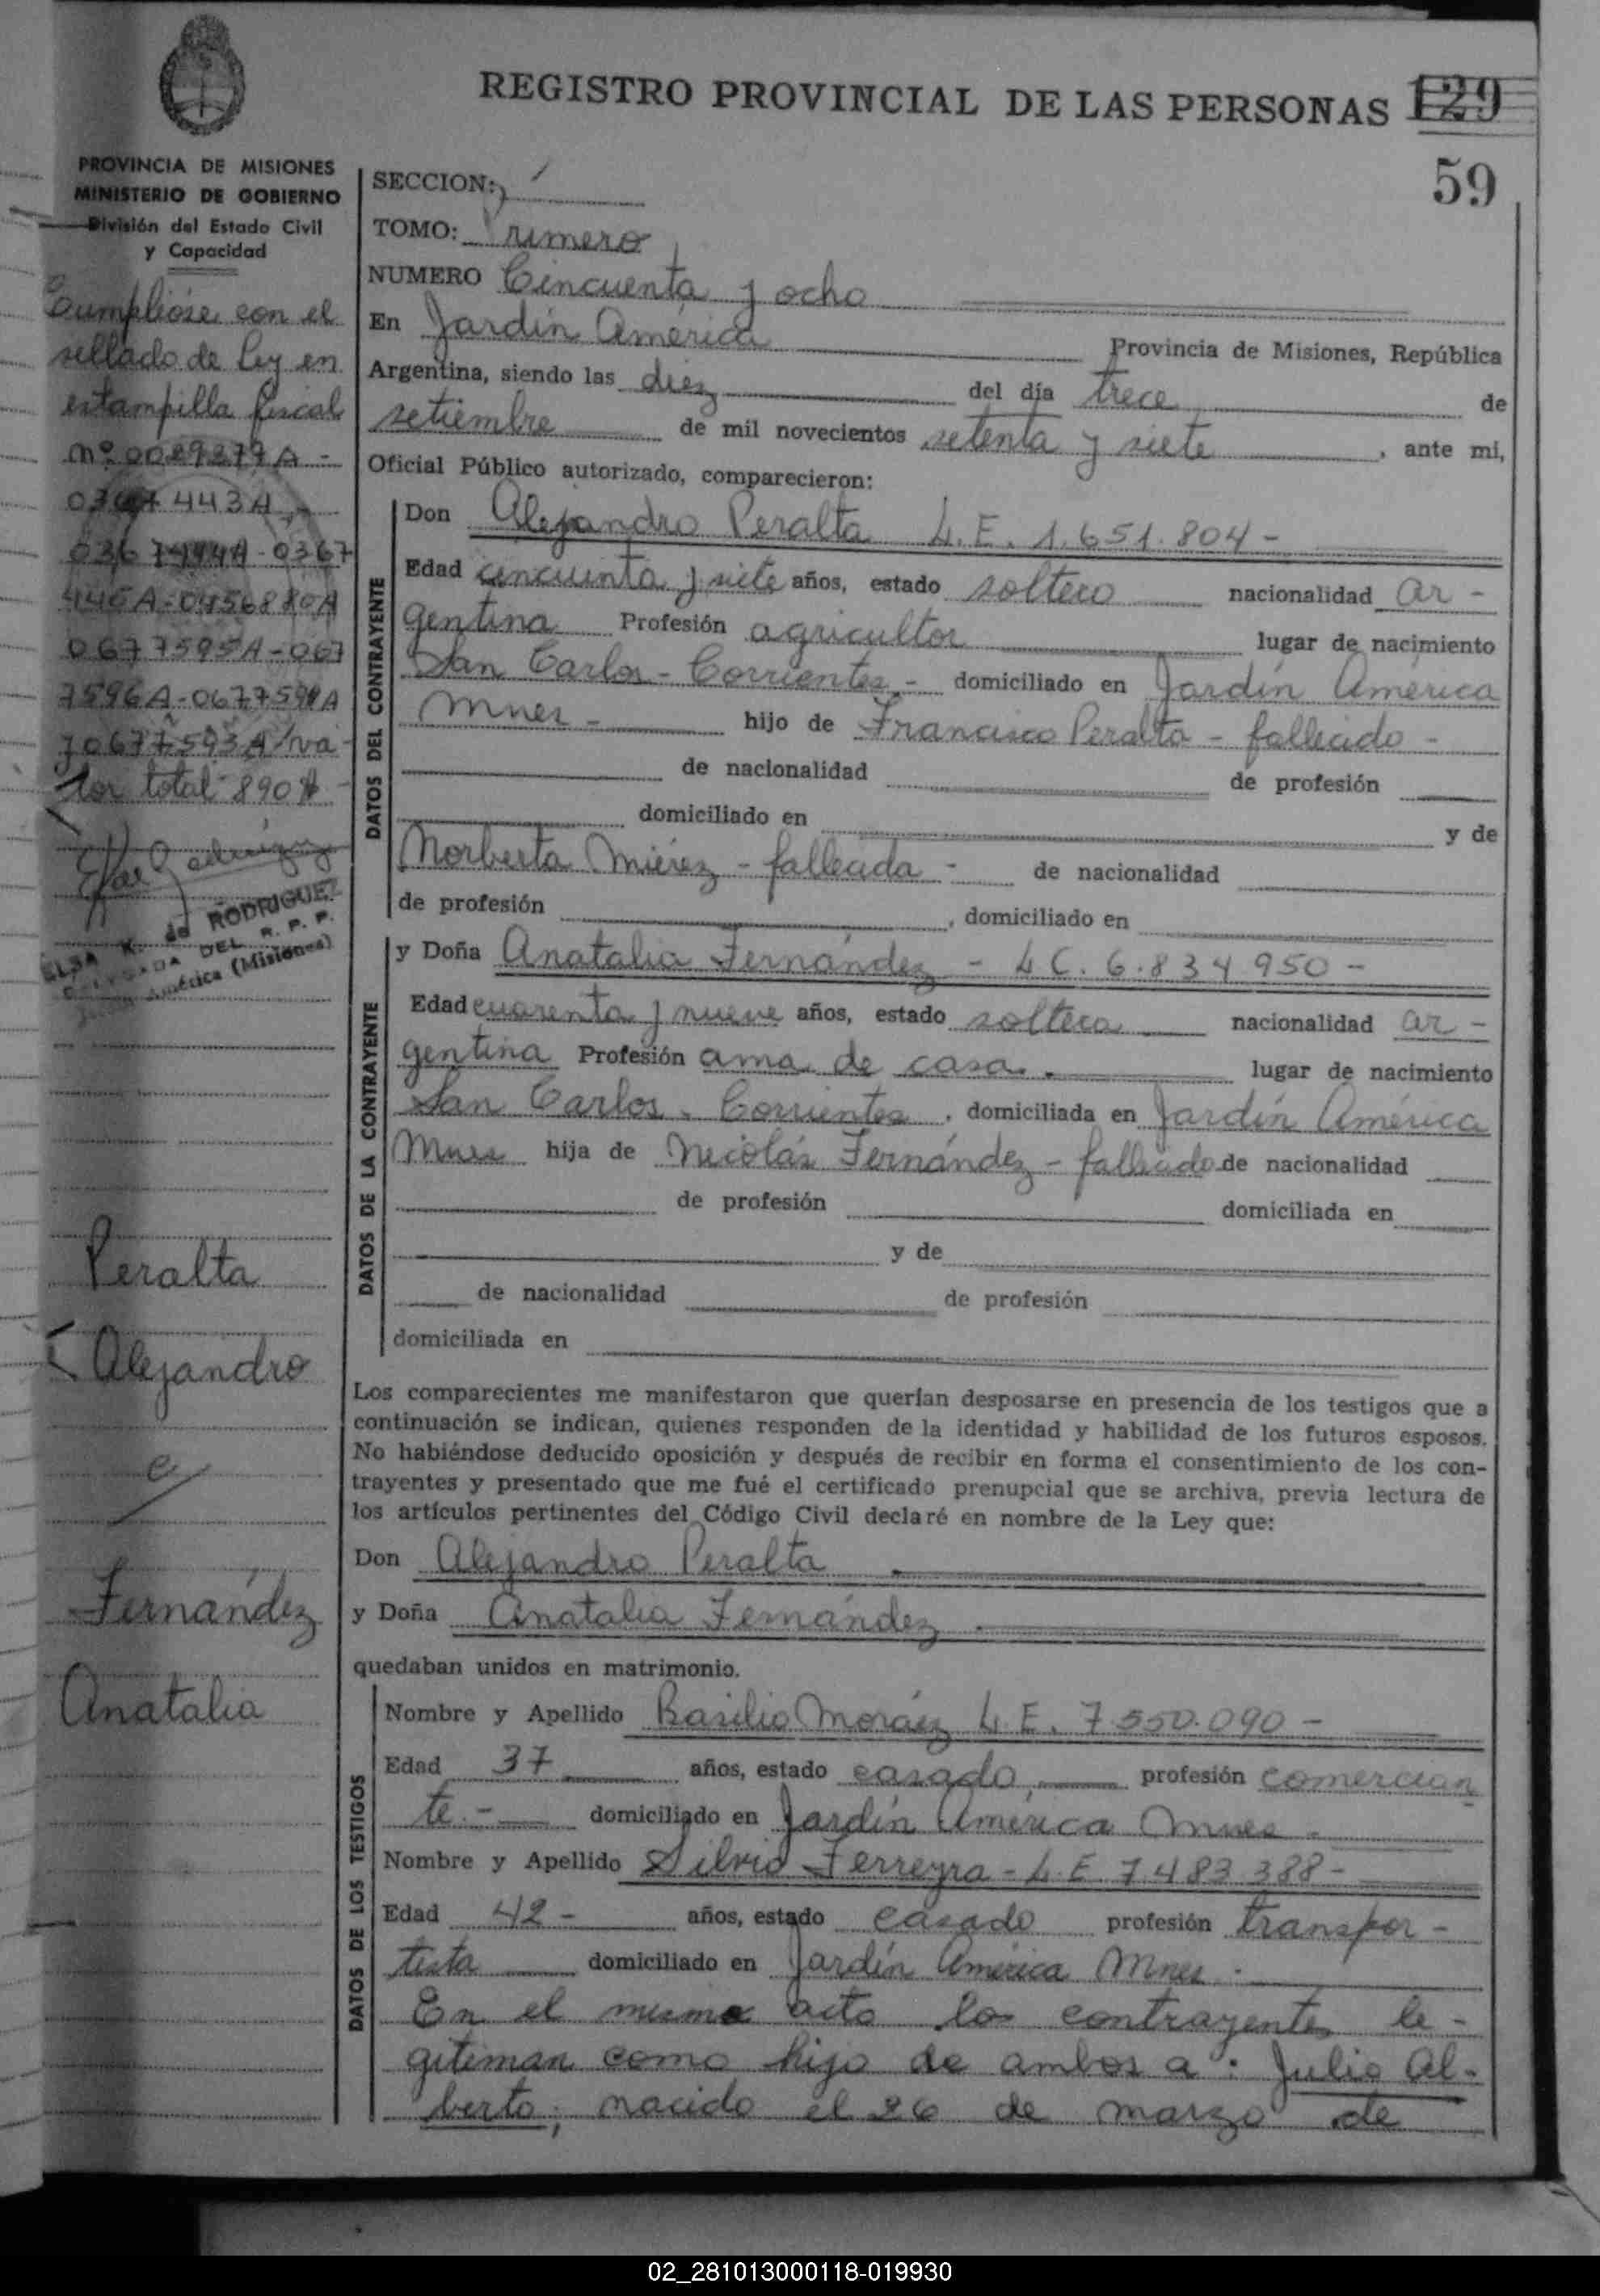 REGISTRO PROVINCIAL DE LAS PERSONAS 129
59
PROVINCIA DE MISIONES
MINISTERIO DE GOBIERNO
División del Estado Civil
y Capacidad
Cumplióse con el
sellado de ley en
estampilla fiscal
nº 0029279 A -
443A
0367
0677595A-067
7596A-
va
lor total 890 $
RODRIGUEZ
DEL R. P. P.
América (Misiones)
Peralta
Alejandro
Fernández
Anatalia
SECCION:
TOMO: Primero
NUMERO Cincuenta y ocho
En Jardín América Provincia de Misiones, República
Argentina, siendo las diez del día trece de
setiembre de mil novecientos setenta y siete, ante mi,
Oficial Público autorizado, comparecieron:
DATOS DEL CONTRAYENTE
Don Alejandro Peralta L.E. 1.651.804 -
Edad cincuenta y siete años, estado soltero nacionalidad ar -
gentina Profesión agricultor lugar de nacimiento
San Carlos - Corrientes - domiciliado en Jardín América
Mnes - hijo de Francisco Peralta - fallecido -
de nacionalidad de profesión
domiciliado en y de
Norberta Miérez - fallecida - de nacionalidad
de profesión , domiciliado en
DATOS DE LA CONTRAYENTE
y Doña Anatalia Fernández - L C. 6.834.950 -
Edad cuarenta y nueve años, estado soltera nacionalidad ar -
gentina Profesión ama de casa. lugar de nacimiento
San Carlos. Corrientes, domiciliada en Jardín América
Mnes hija de Nicolás Fernández - fallecido de nacionalidad
de profesión domiciliada en
y de
de nacionalidad de profesión
domiciliada en
Los comparecientes me manifestaron que querían desposarse en presencia de los testigos que a
continuación se indican, quienes responden de la identidad y habilidad de los futuros esposos.
No habiéndose deducido oposición y después de recibir en forma el consentimiento de los con-
trayentes y presentado que me fué el certificado prenupcial que se archiva, previa lectura de
los artículos pertinentes del Código Civil declaré en nombre de la Ley que:
Don Alejandro Peralta
y Doña Anatalia Fernández
quedaban unidos en matrimonio.
DATOS DE LOS TESTIGOS
Nombre y Apellido Basilio Moráez L.E. 7.550.090 -
Edad 37 años, estado casado, profesión comercian
te. - domiciliado en Jardín América Mnes.
Nombre y Apellido Silvio Ferreyra - L.E. 7.483.388 -
Edad 42 - años, estado casado profesión transpor -
tista domiciliado en Jardín América Mnes.
En el mismo acto los contrayentes le -
gitiman como hijo de ambos a : Julio Al -
berto, nacido el 26 de marzo de
02_281013000118-019930